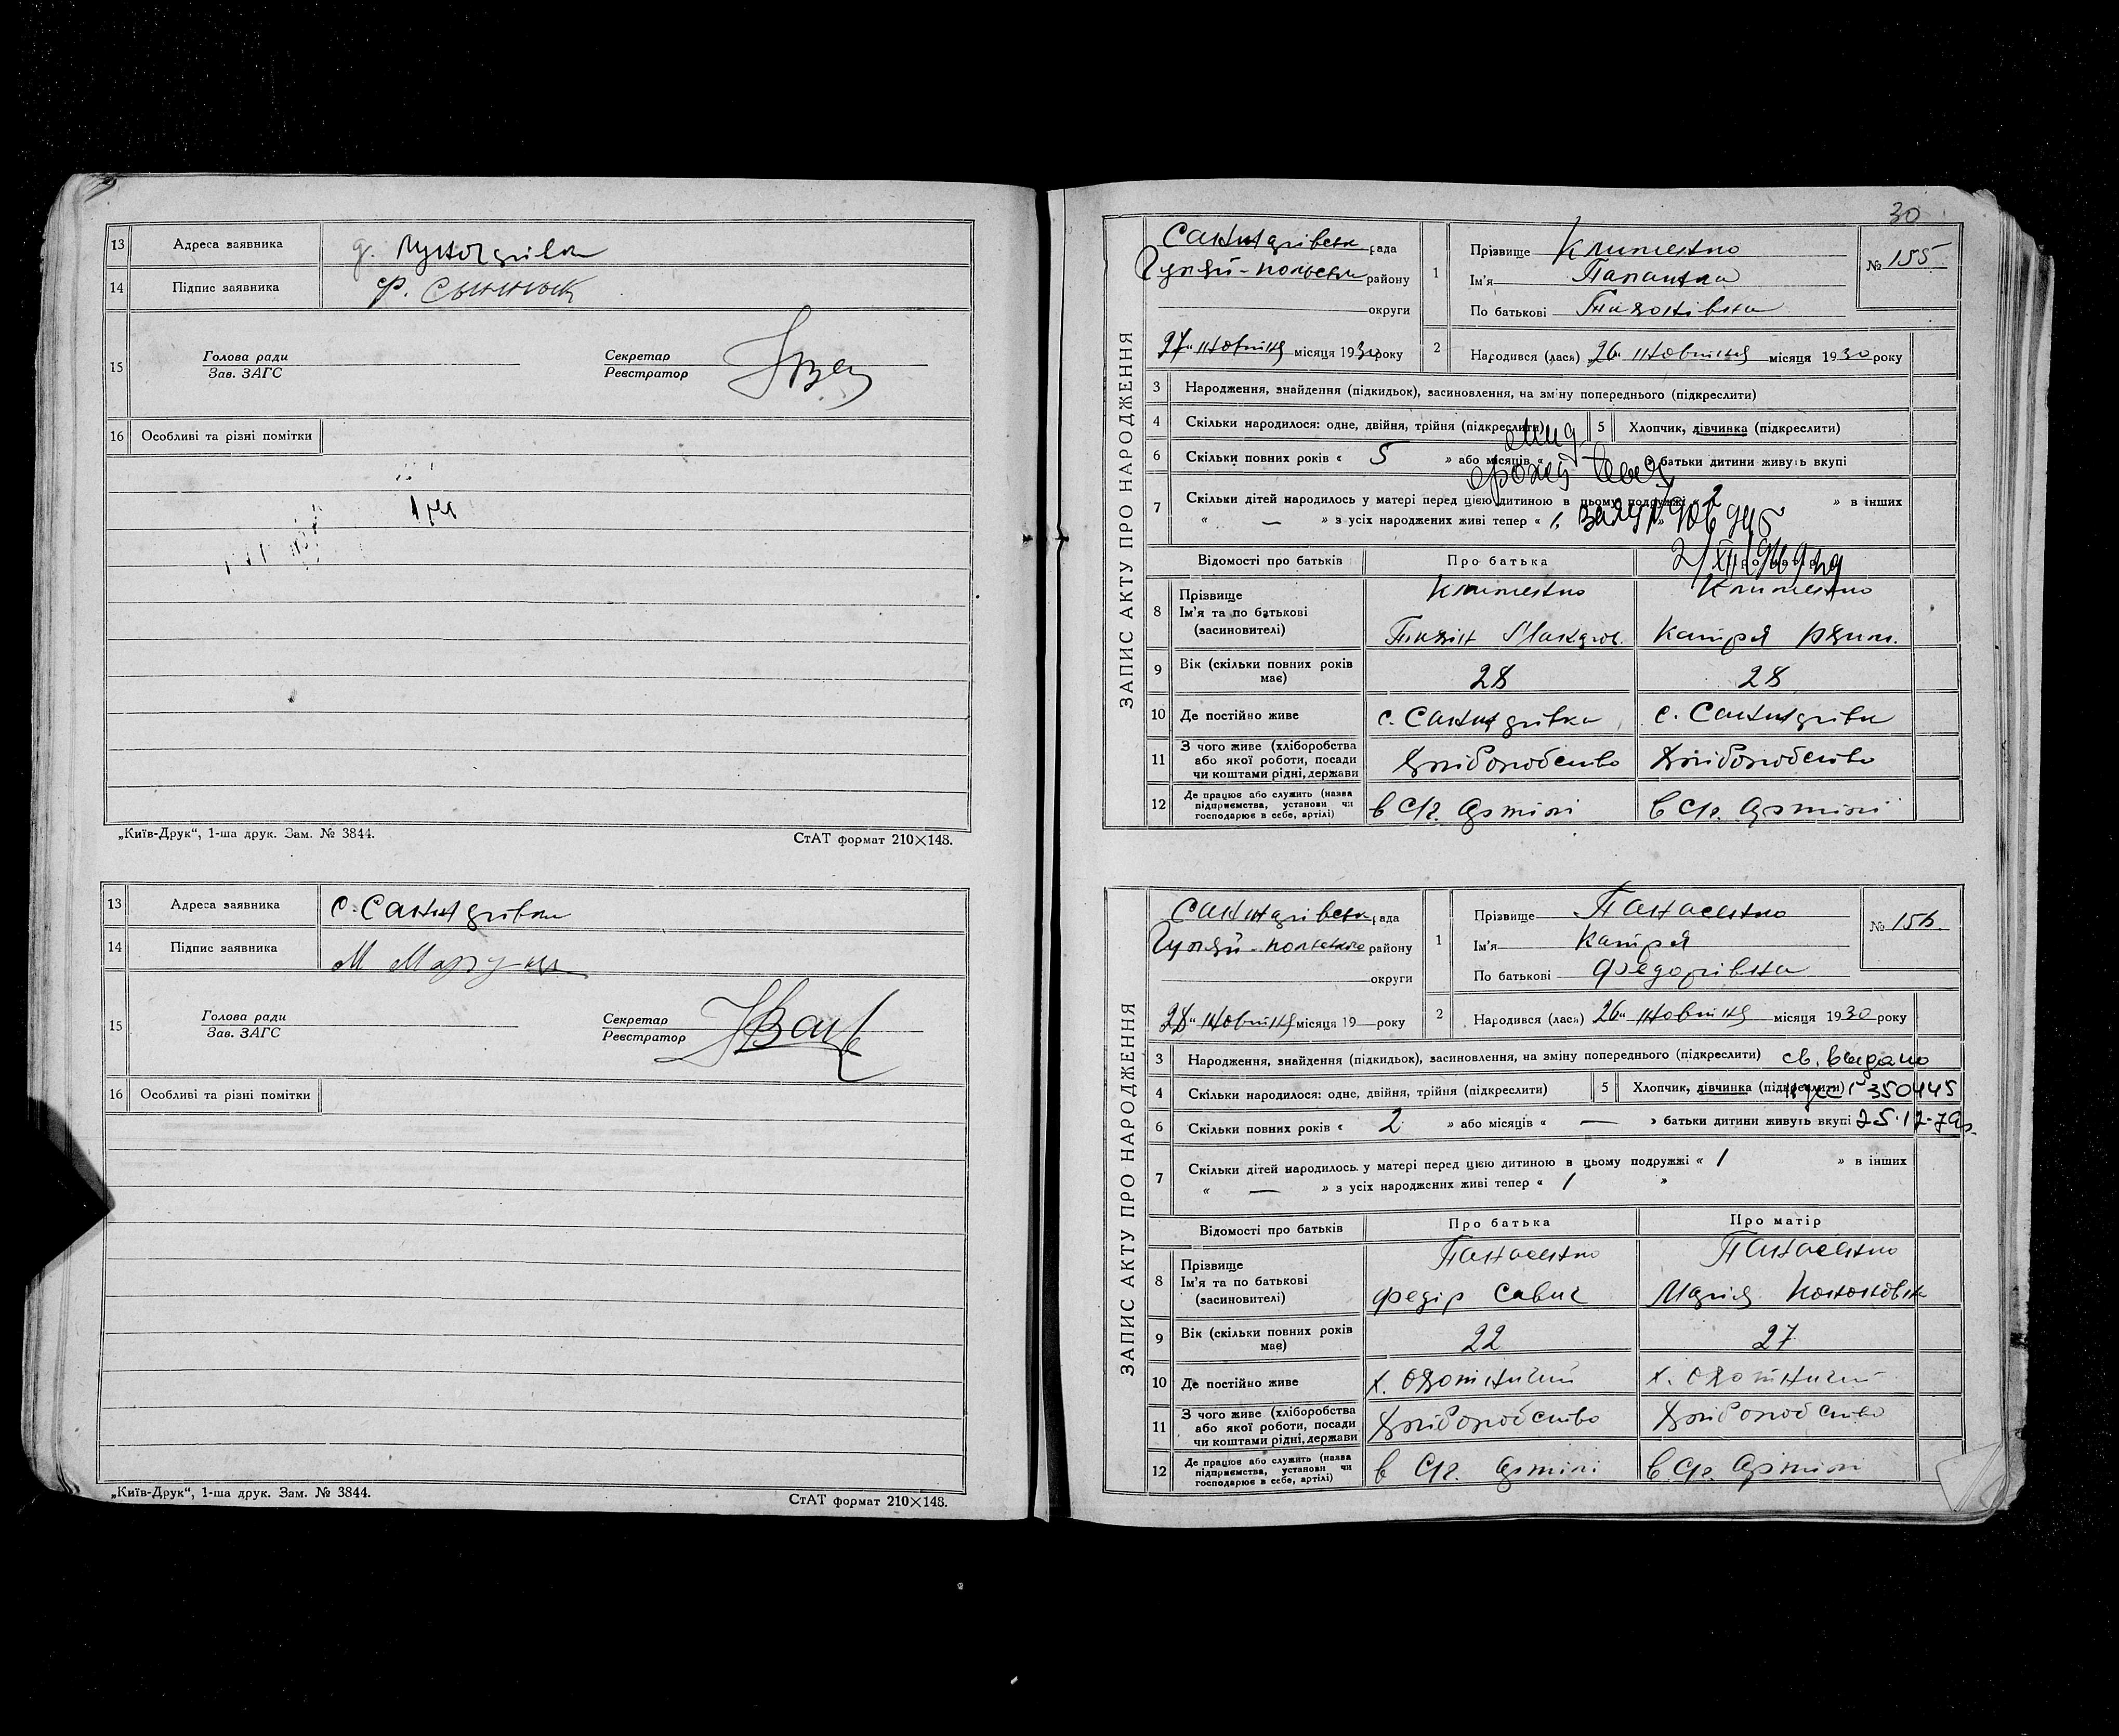 13 Адреса заявника
14 Підпис заявника
15 Голова ради
Зав. ЗАГС
Секретар
Реєстратор
16 Особливі та різні помітки
„Київ-Друк“, 1-ша друк. Зам. № 3844.
СтАТ формат 210×148.
13 Адреса заявника с. Санжарівка
14 Підпис заявника М
15 Голова ради
Зав. ЗАГС
Секретар
Реєстратор
16 Особливі та різні помітки
„Київ-Друк“, 1-ша друк. Зам. № 3844.
СтАТ формат 210×148.
30
ЗАПИС АКТУ ПРО НАРОДЖЕННЯ
рада
Гуляй-польськ району
округи
27 " жовтня місяця 1930 року
1 Прізвище Клименко
Ім'я Параска
По батькові Тихонівна
№ 155
2 Народився (лася) „26" жовтня місяця 1930 року
3 Народження, знайдення (підкидьок), засиновлення, на зміну попереднього (підкреслити)
4 Скільки народилося: одне, двійня, трійня (підкреслити)
5 Хлопчик, дівчинка (підкреслити)
6 Скільки повних років « 5 » або місяців « » батьки дитини живуть вкупі
7 Скільки дітей народилось у матері перед цією дитиною в цьому подружжі « 2 » в інших
« — » з усіх народжених живі тепер « 1 »
Відомості про батьків
Про батька
8 Прізвище
Ім'я та по батькові
(засиновителі)
Клименко
Клименко
Тихін
Катря
9 Вік (скільки повних років має) 28 28
10 Де постійно живе с. Санжарівка с. Санжарівка
11 З чого живе (хліборобства або якої роботи, посади чи коштами рідні, держави Хліборобство Хліборобство
12 Де працює або служить (назва підприємства, установи чи господарює в себе, артілі) в С/г. Артілі в С/г. Артілі
ЗАПИС АКТУ ПРО НАРОДЖЕННЯ
рада
Гуляй-польського району
округи
28 " жовтня місяця 19 — року
1 Прізвище Панасенко
Ім'я Катря
По батькові Федорівна
№ 156
2 Народився (лася) 26 " жовтня місяця 1930 року
3 Народження, знайдення (підкидьок), засиновлення, на зміну попереднього (підкреслити) св. выдано
4 Скільки народилося: одне, двійня, трійня (підкреслити)
5 Хлопчик, дівчинка (підкреслити) 350445
6 Скільки повних років « 2 » або місяців « — » батьки дитини живуть вкупі 25.12.79г.
7 Скільки дітей народилось у матері перед цією дитиною в цьому подружжі « 1 » в інших
« — » з усіх народжених живі тепер « 1 »
Відомості про батьків
Про батька
Про матір
8 Прізвище
Ім'я та по батькові
(засиновителі)
Панасенко
Панасенко
Федір Савич
Марія Кононовна
9 Вік (скільки повних років має) 22 27
10 Де постійно живе х. Охотничий х. Охотничий
11 З чого живе (хліборобства або якої роботи, посади чи коштами рідні, держави Хліборобство Хліборобство
12 Де працює або служить (назва підприємства, установи чи господарює в себе, артілі) в С/г. Артілі в С/г. Артілі